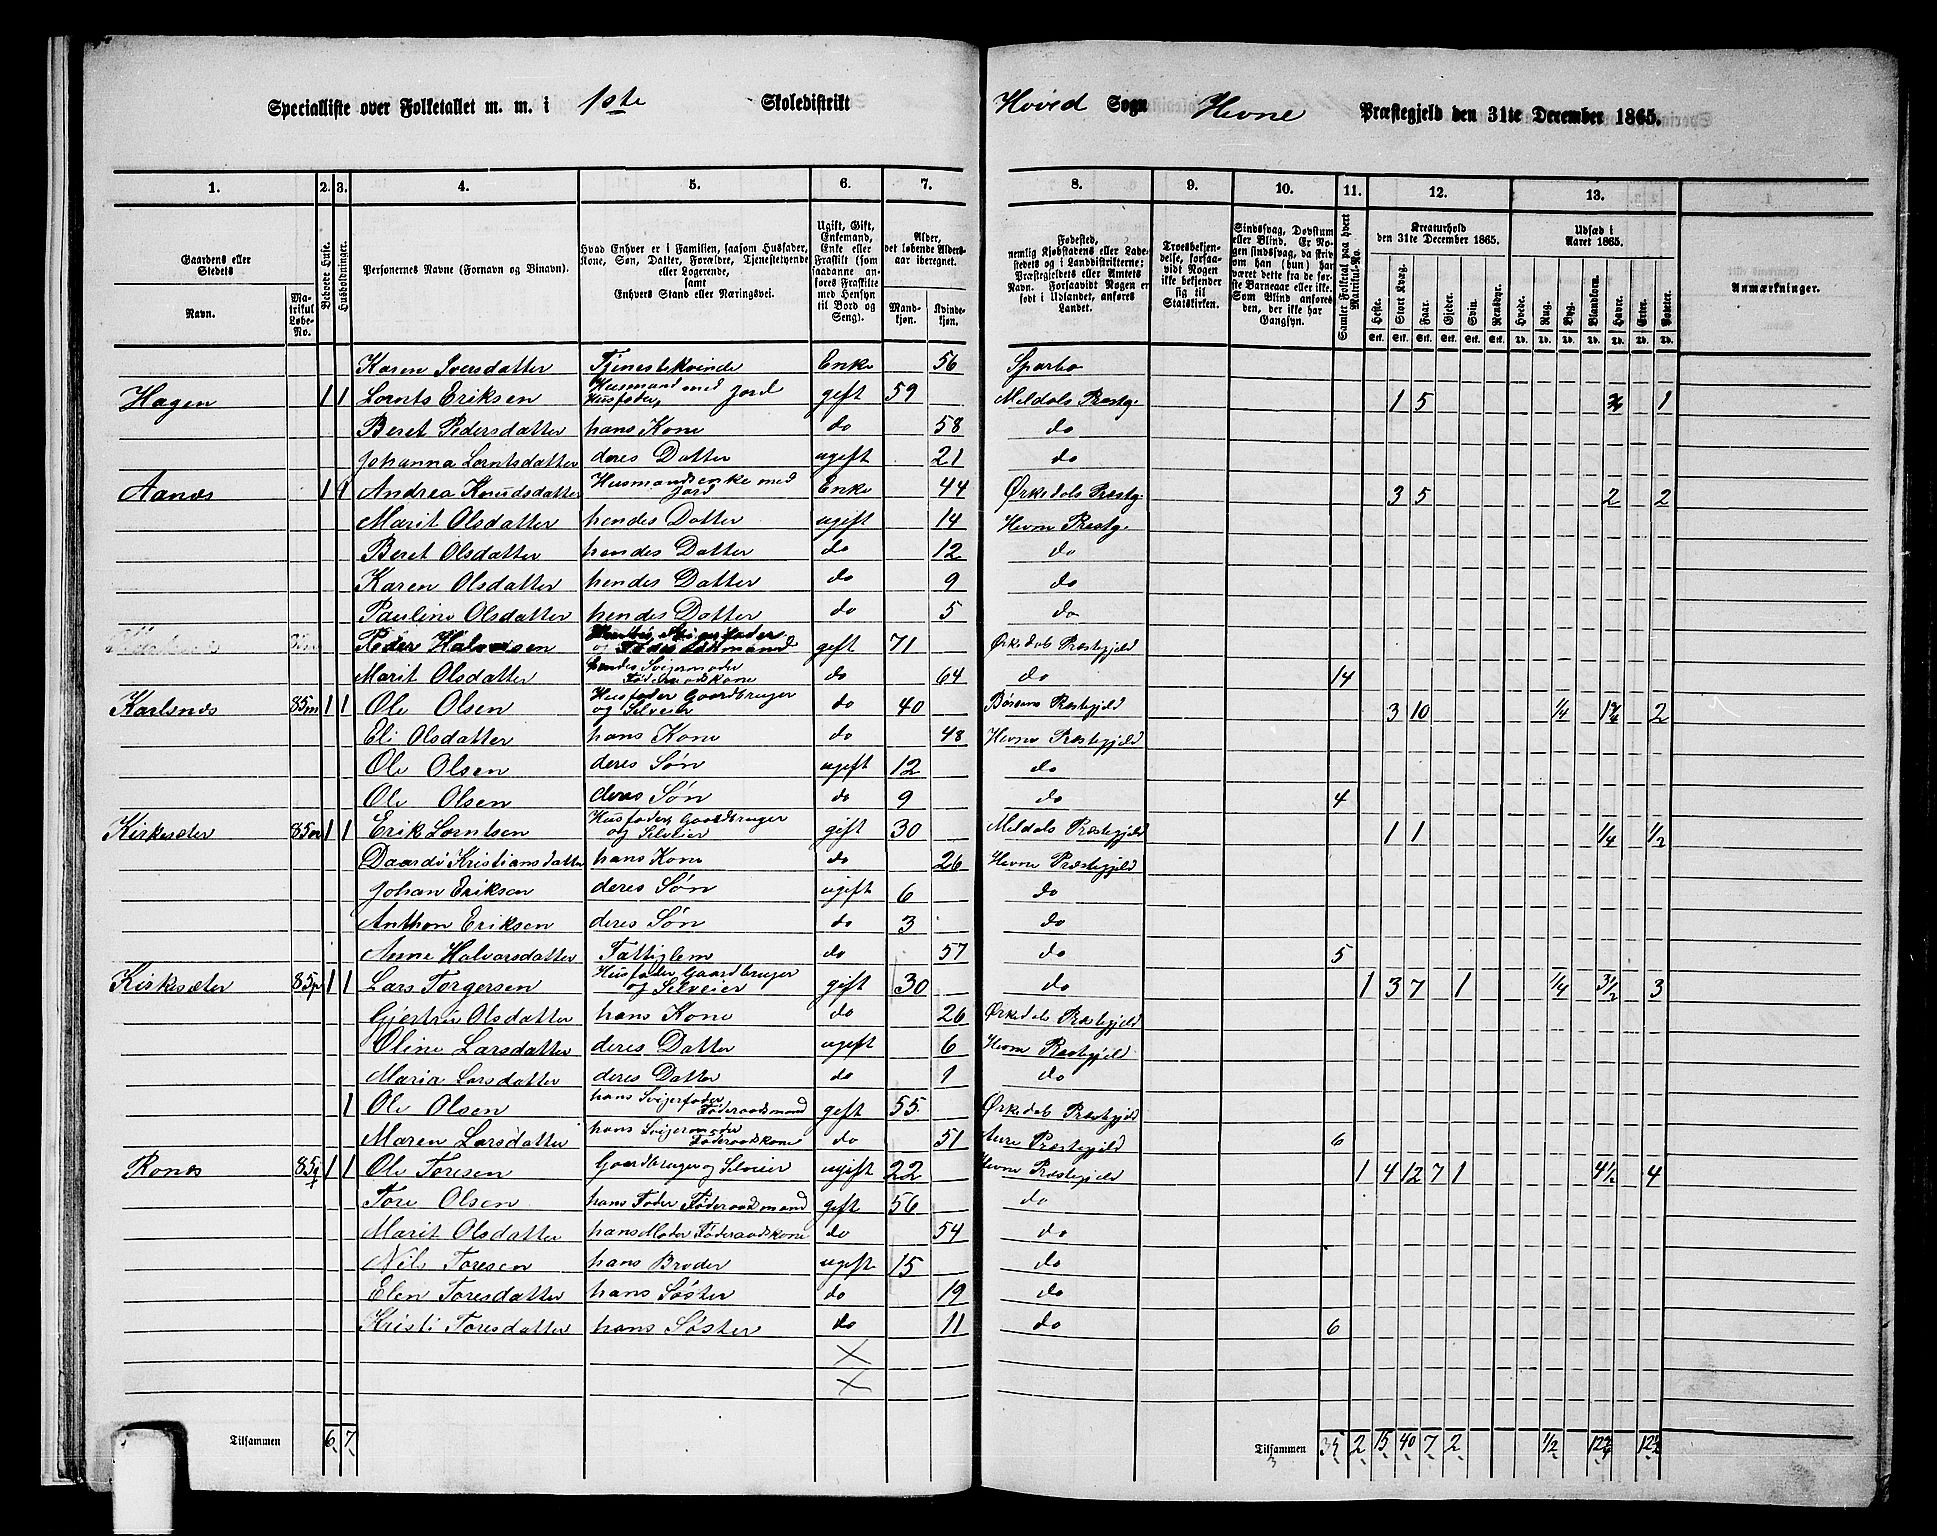 Specialliste over Folketallet m. m. i 1ste Skoledistrikt Hoved Sogn Hevne Præstegjeld den 31te December 1865.
1. 2. 3. 4. 5. 6. 7. 8. 9. 10. 11. 12. 13.
Gaardens eller Stedets Navn. Matrikul Løbe-No. Beboede Huse. Husholdninger. Personernes Navne (Fornavn og Binavn).
Hvad Enhver er i Familien, saasom Husfader, Kone, Søn, Datter, Forældre, Tjenestetyende eller Logerende, samt Enhvers Stand eller Næringsvei.
Ugift, Gift, Enkemand, Enke eller Fraskilt (som saadanne anføres Fraskilte med Hensyn til Bord og Seng).
Alder, det løbende Alders-aar iberegnet. Mandkjøn. Kvindekjøn.
Fødested, nemlig Kjøbstadens eller Ladestedets og i Landdistrikterne: Præstegjeldets eller Amtets Navn. Forsaavidt Nogen er født i Udlandet, anføres Landet.
Troesbekjendelse, forsaavidt Nogen ikke bekjender sig til Statskirken.
Sindssvag, Døvstum eller Blind. Er Nogen sindssvag, da skrives om han (hun) har været dette fra de første Barneaar eller ikke. Som Blind anføres den, der ikke har Gangsyn.
Samlet Folketal paa hvert Matrikul-No.
Kreaturhold den 31te December 1865. Heste. Stort Kvæg. Faar. Gjeder. Svin. Rensdyr.
Udsæd i Aaret 1865. Hvede. Rug. Byg. Blandkorn. Havre. Erter. Poteter.
Anmærkninger.
Karen Iversdatter Tjenestekvinde Enke 56 Sparbo
Hagen 1 1 Lornts Eriksen Husmand med Jord Husfader gift 59 Meldals Præstg. 1 5 1
Beret Pedersdatter hans Kone do 58 do
Johanna Lorntsdatter deres Datter ugift 21 do
Aanes 1 1 Andrea Knudsdatter Husmandsenke med Jord Enke 44 Ørkedals Præstg. 3 5 2 2
Marit Olsdatter hendes Datter ugift 14 Hevne Præstg.
Beret Olsdatter hendes Datter do 12 do
Karen Olsdatter hendes Datter do 9 do
Pauline Olsdatter hendes Datter do 5 do
Peder Halvorsen Svigerfader og Føderaadsmand gift 71 Ørkedals Præstegjeld
Marit Olsdatter hendes Svigermoder Føderaadskone do 64 do 14
Karlsnes 85m 1 1 Ole Olsen Husfader Gaardbruger og Selveier do 40 Børsens Præstegjeld 3 10 1/4 2
Eli Olsdatter hans Kone do 48 Hevne Præstegjeld
Ole Olsen deres Søn ugift 12 do
Ole Olsen deres Søn do 9 do 4
Kirkesæter 1 1 Erik Lorntsen Husfader Gaardbruger og Selveier gift 30 Meldals Præstegjeld 1 1 1/4 1/2
Daardi Kristiansdatter hans Kone do 26 Hevne Præstegjeld
Johan Eriksen deres Søn ugift 6 do
Anthon Eriksen deres Søn do 3 do
Anne Halvorsdatter Fattiglem do 57 do 5
Kirkesæter 85p 1 1 Lars Torgersen Husfader Gaardbruger og Selveier gift 30 do 1 3 7 1 1/4 3 1/2 3
Gjertrue Olsdatter hans Kone do 26 Ørkedals Præstegjeld
Oline Larsdatter deres Datter ugift 6 Hevne Præstegjeld
Maria Larsdatter deres Datter do 1 do
1 Ole Olsen hans Svigerfader Føderaadsmand gift 55 Ørkedals Præstegjeld
Maren Larsdatter hans Svigermoder Føderaadskone do 51 Aure Præstegjeld 6
Rones 85q 1 1 Ole Toresen Gaardbruger og Selveier ugift 22 Hevne Præstegjeld 1 4 12 7 1 4 1/2 4
Tore Olsen hans Fader Føderaadsmand gift 56 do
Marit Olsdatter hans Moder Føderaadskone do 54 do
Nils Toresen hans Broder ugift 15 do
Elen Toresdatter hans Søster do 19 do
Kristi Toresdatter hans Søster do 11 do 6
X
X
Tilsammen 6 7 Tilsammen 35 2 15 40 7 2 1/2